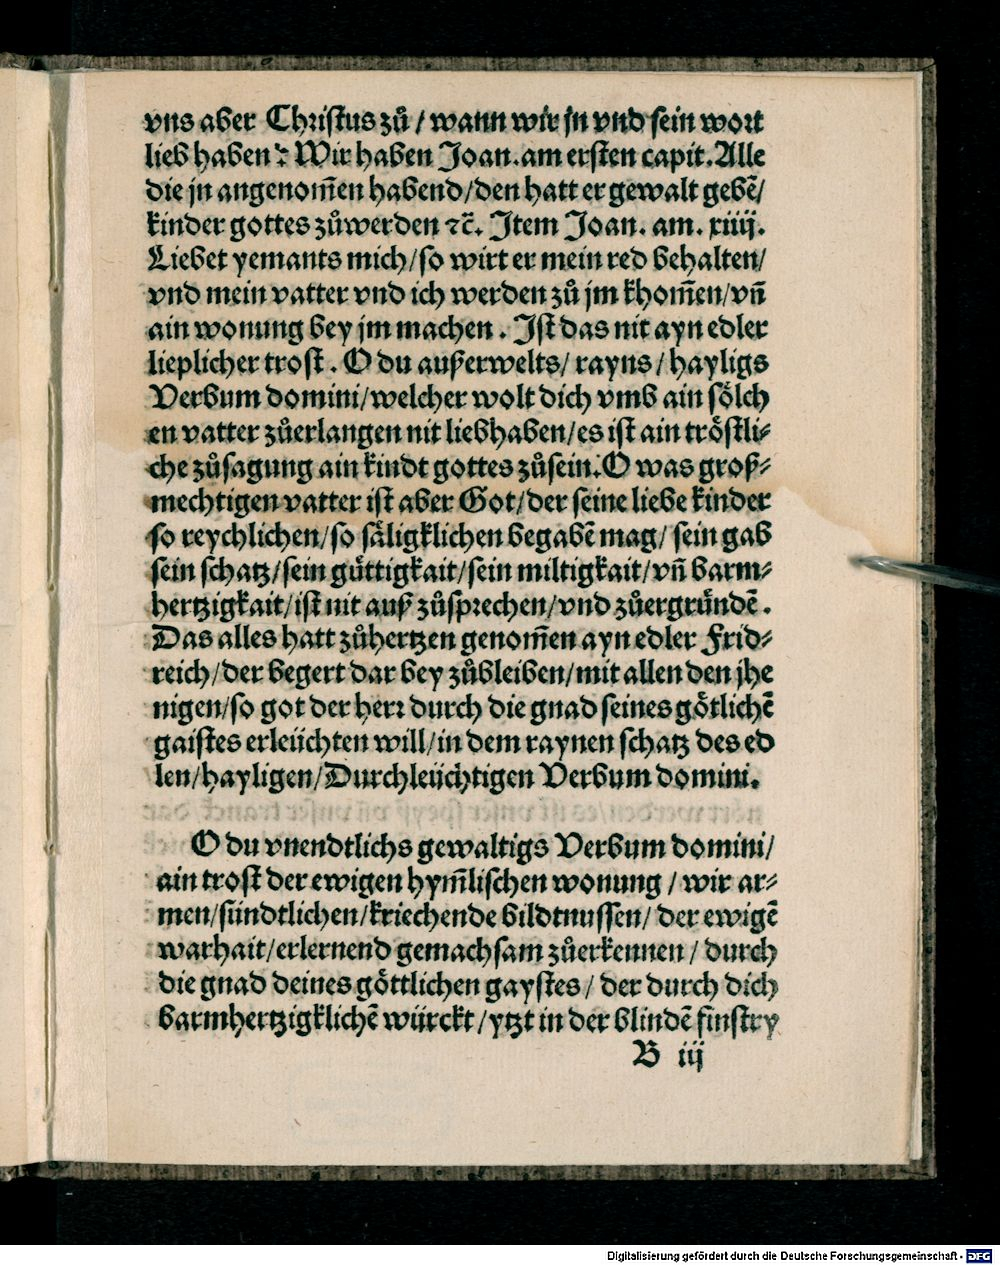 vns aber Christus zů / wann wir jn vnd sein wort
lieb haben? Wir haben Joan. am ersten capit. Alle
die jn angenom̃en habend / den hatt er gewalt gebẽ /
kinder gottes zůwerden ⁊c̃. Jtem Joan. am. xiiij.
Liebet yemants mich / so wirt er mein red behalten /
vnd mein vatter vnd ich werden zů jm khom̃en / vñ
ain wonung bey jm machen. Jst das nit ayn edler
lieplicher trost. O du außerwelts / rayns / hayligs
Verbum domini / welcher wolt dich vmb ain soͤlch
en vatter zůerlangen nit liebhaben / es ist ain troͤstli⸗
che zůsagung ain kindt gottes zůsein. O was groß⸗
mechtigen vatter ist aber Got / der seine liebe kinder
so reychlichen / so saͤligklichen begabẽ mag / sein gab
sein schatz / sein guͤttigkait / sein miltigkait / vñ barm⸗
hertzigkait / ist nit auß zůsprechen / vnd zůergruͤndẽ.
Das alles hatt zůhertzen genom̃en ayn edler Frid⸗
reich / der begert dar bey zůbleiben / mit allen den jhe
nigen / so got der herr durch die gnad seines goͤtlichẽ
gaistes erleüchten will / in dem raynen schatz des ed
len / hayligen / Durchleüchtigen Verbum domini.
O du vnendtlichs gewaltigs Verbum domini /
ain trost der ewigen hym̃lischen wonung / wir ar⸗
men / sündtlichen / kriechende bildtnussen / der ewigẽ
warhait / erlernend gemachsam zůerkennen / durch
die gnad deines goͤttlichen gaystes / der durch dich
barmhertzigklichẽ würckt / ytzt in der blindẽ finstry
B iij
Digitalisierung gefördert durch die Deutsche Forschungsgemeinschaft - DFG